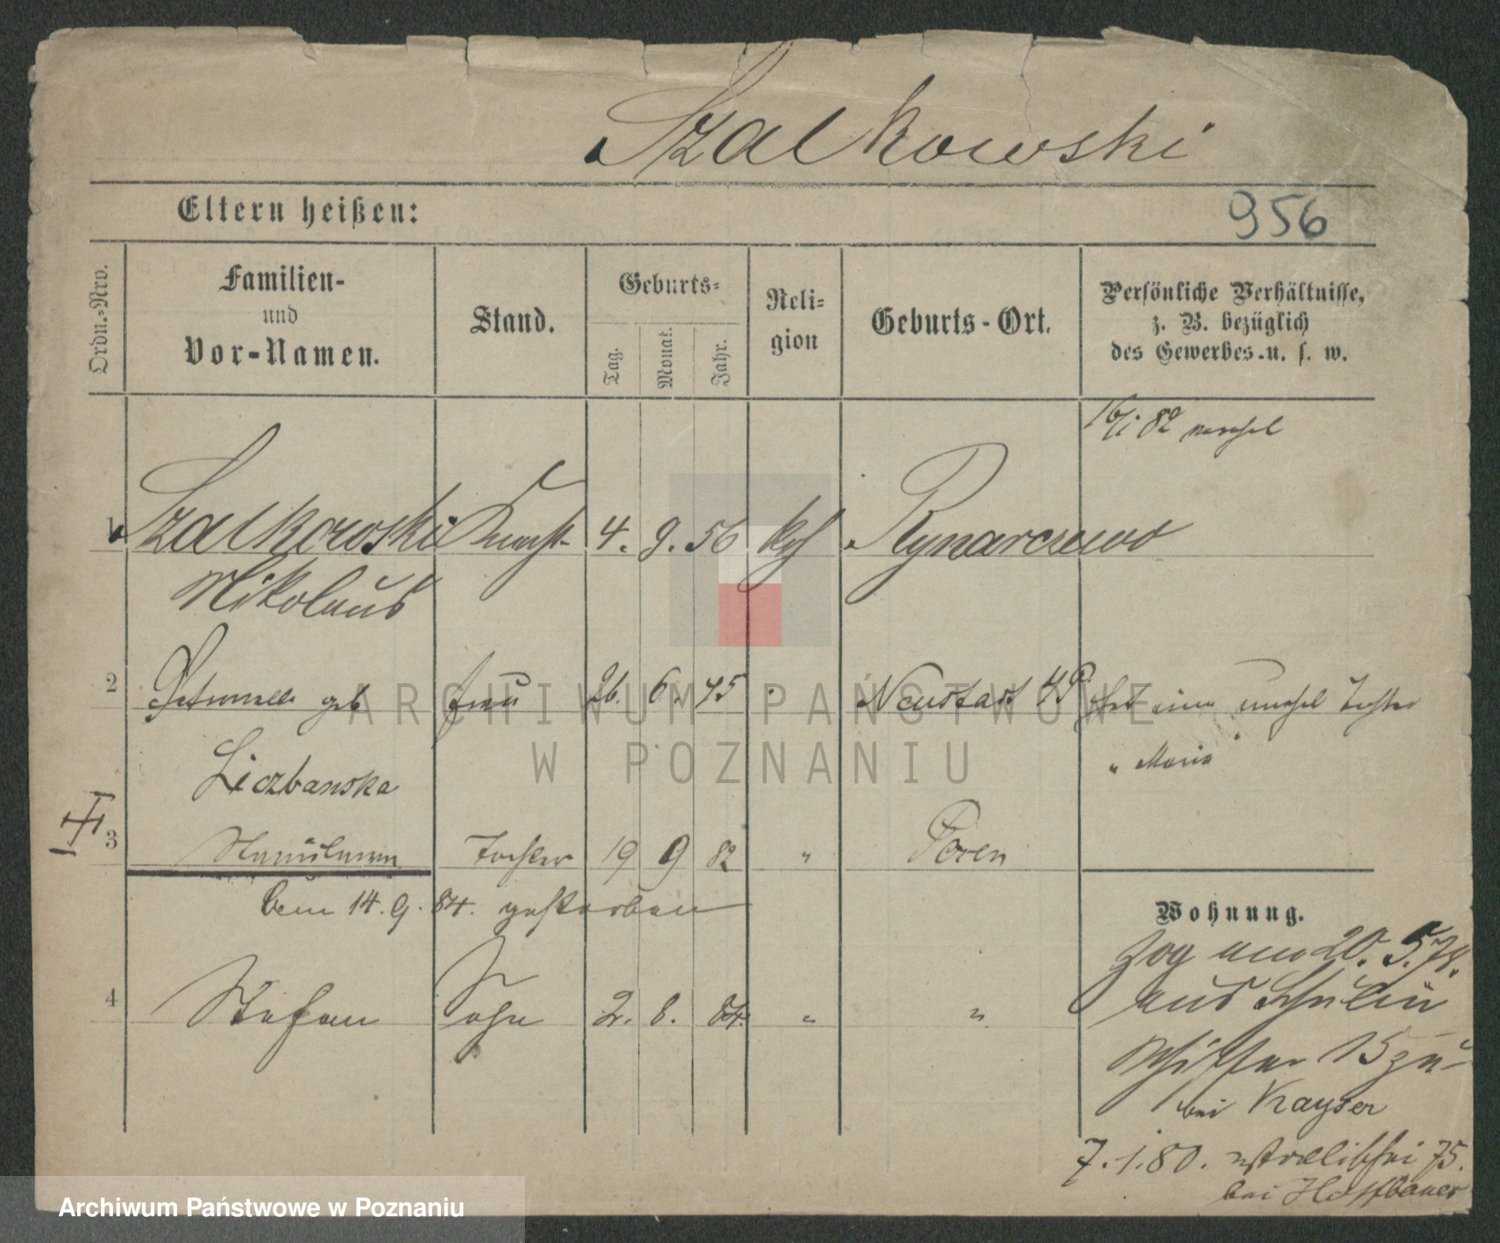 Szalkowski
Eltern heißen:
956
Ordn.-Nro.
Familien-
und
Vor-Namen.
Stand.
Geburts-
Tag.
Monat.
Jahr.
Reli-
gion
Geburts-Ort.
Persönliche Verhältnisse,
z. B. bezüglich
des Gewerbes u. s. w.
16/1 82
1 Szalkowski 4. 9. 56 kth Rynarczewo
Mikolaus
2 geb Frau 26. 6. 45 Neustadt
Liczbanska
"Maria"
3 Tochter 19 9 82 " Posen
14. 9. 84. gestorben
Wohnung.
4 Stefan Sohn 2. 8. 84. " "
zog am 20. 5.
aus
15 zu
bei Kayser
7. 1. 80. 75.
bei
ARCHIWUM PAŃSTWOWE
W POZNANIU
Archiwum Państwowe w Poznaniu